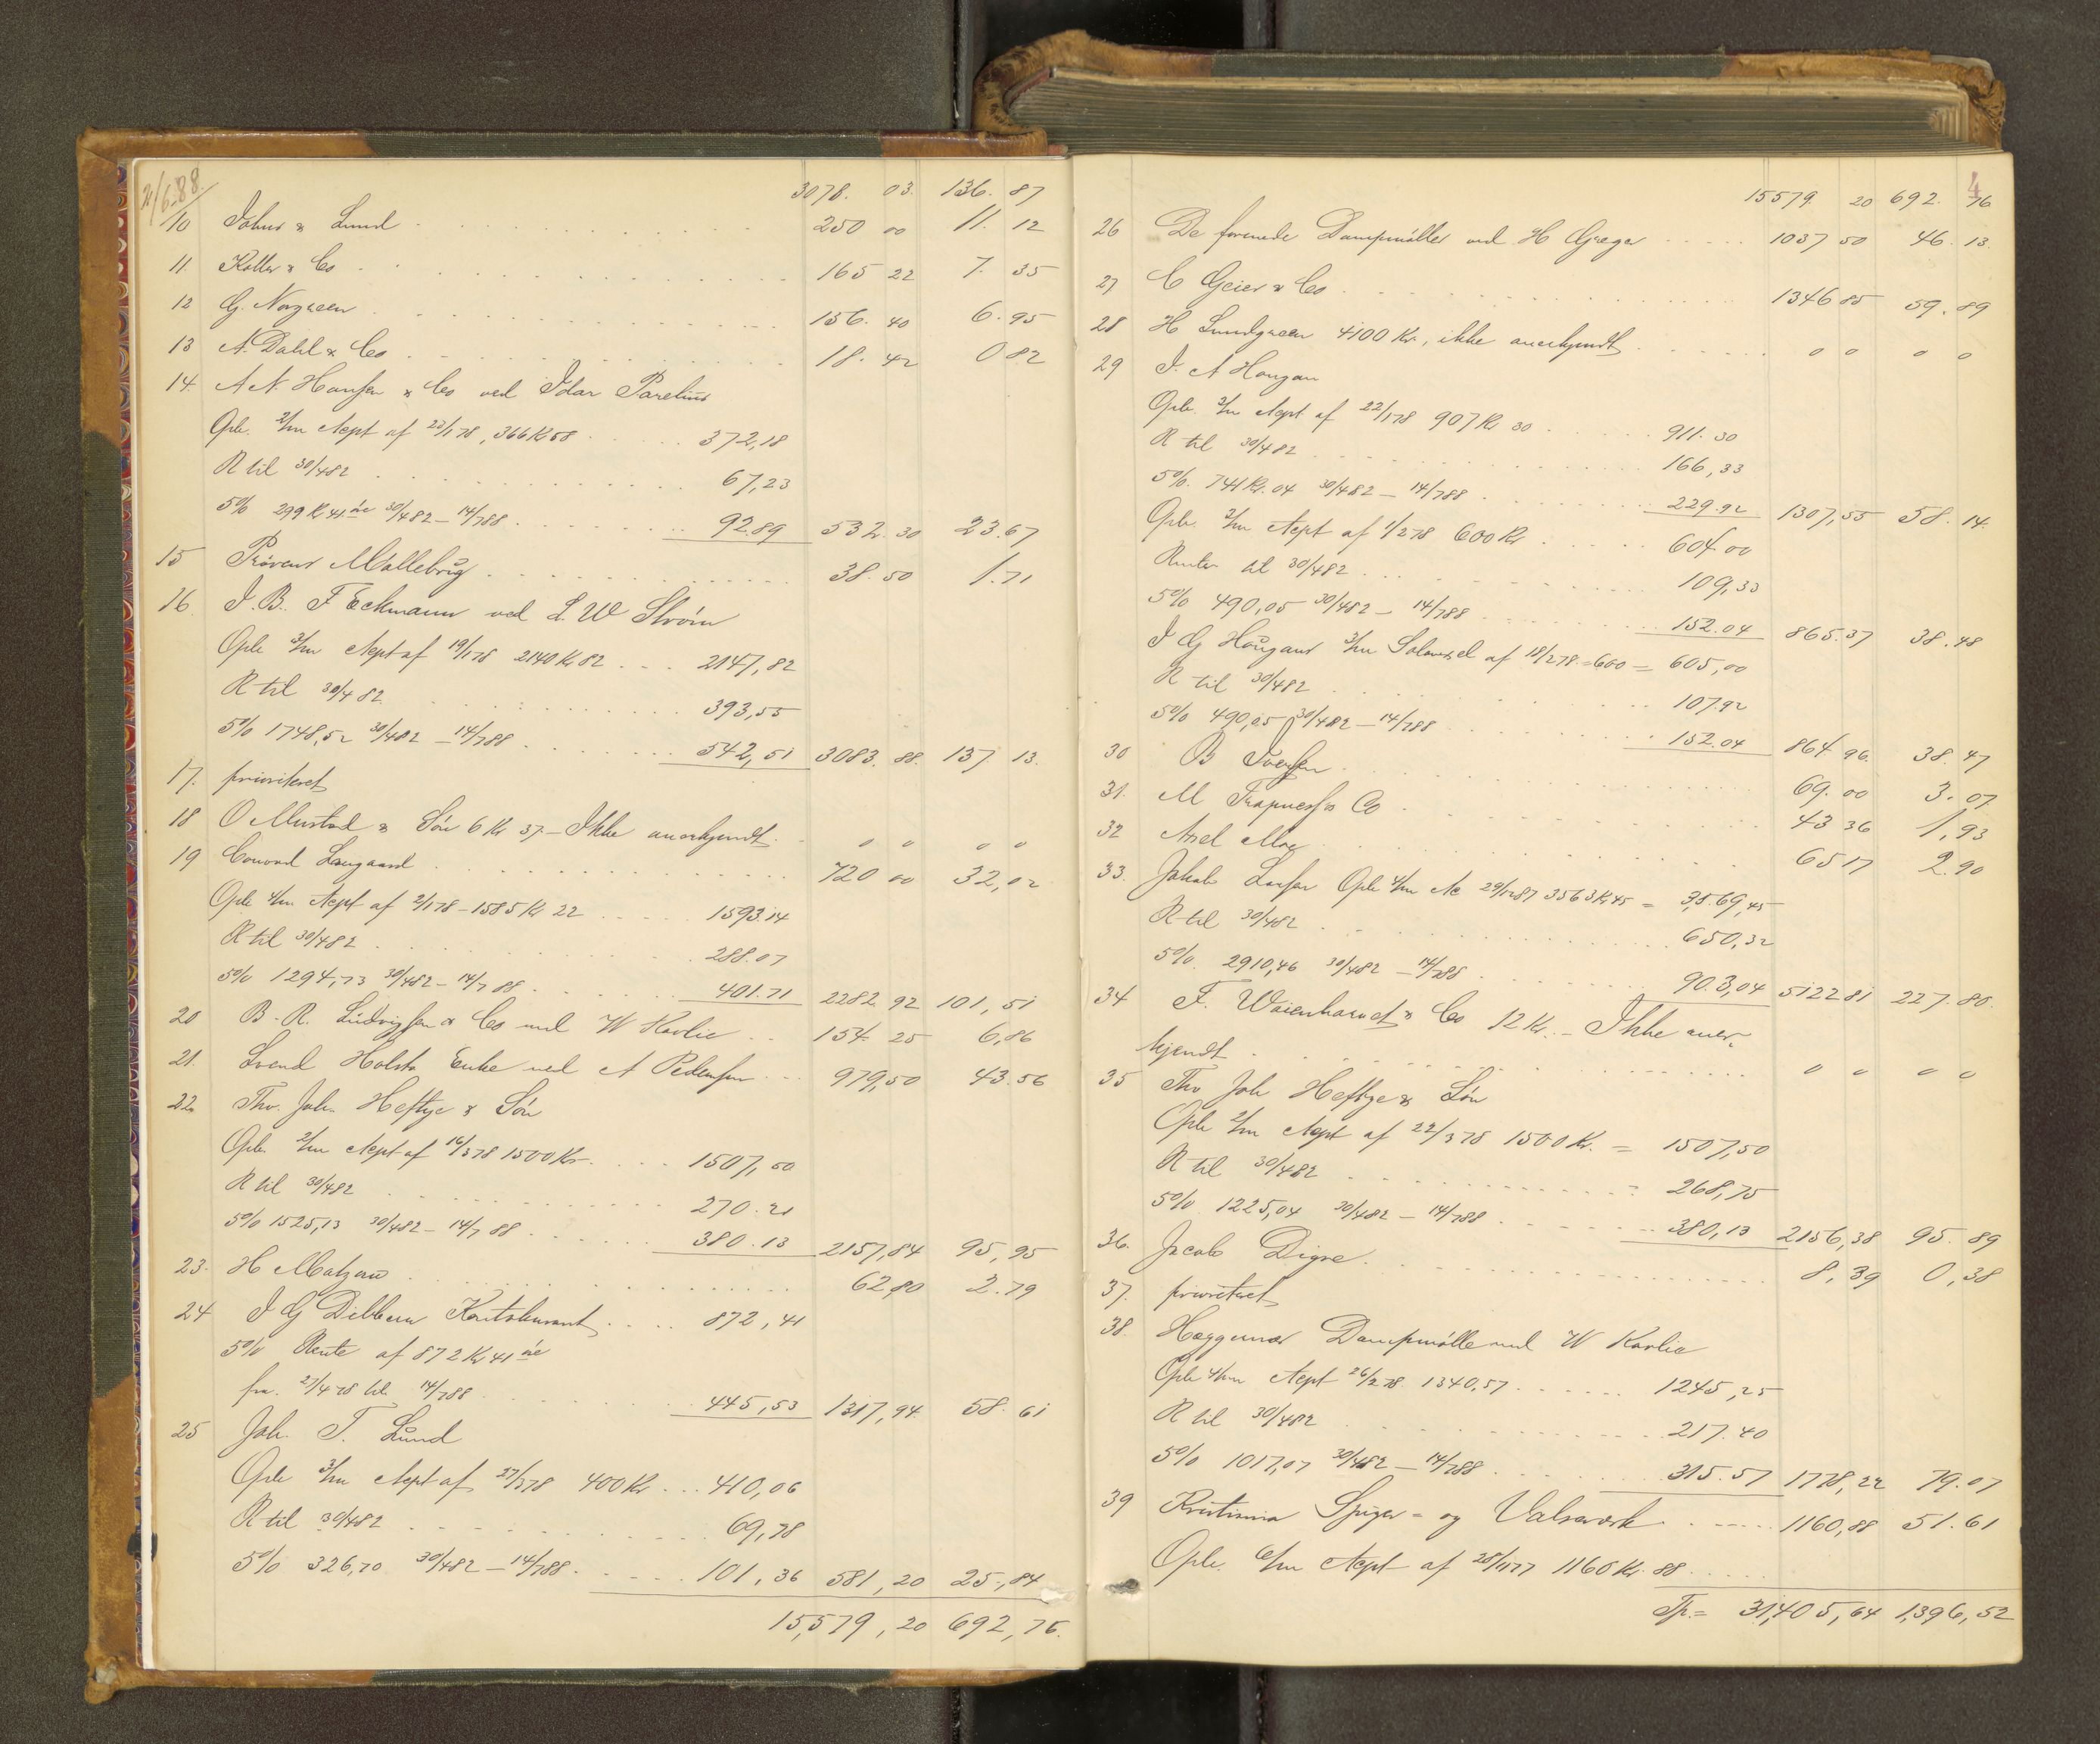 2/6-88.
3078. 03. 136. 87
10 Johns & Lund 250 00 11. 12
11. Koller & Co 165 22 7. 35
12 G. Norgreen 156. 40 6. 95
13 A. Dahl & Co 18. 42 0 82
14. A N. Hansen & Co ved Idar Parelius
Opb. 2/m Acpt af 23/1 78, 366 Kr 58 372,18
R til 30/4 82 67,23
5% 299 Kr 41 øre 30/4 82 - 14/7 88 92.89 532. 30 23.67
15 Prøvens Møllebrug 38. 50 1. 71
16. I. B. F Eckmann ved L. W Strøm
Opb 3/m Acpt af 19/1 78 2140 Kr 82 2147,82
R til 30/4 82 393,55
5% 1748,52 30/4 82 - 14/7 88 542,51 3083. 88. 137. 13.
17. prioriteret
18 O Mustad & Søn 6 Kr 37. - Ikke anerkjendt. 0 0 0 0
19 Conrad Langaard 720 00 32,02
Opb 4/m Acpt af 2/1 78 - 1585 Kr 22 1593.14
R til 30/4 82 288.07
5% 1294,73 30/4 82 - 14/7 88 401.71 2282. 92 101,51
20 B. R. Ludvigsen & Co ved W Kavlie 154. 25 6,86
21. Svend Holsts Enke ved A Pedersen 979,50 43.56
22 Tho. Joh. Heftye & Søn
Opb. 2/m Acpt af 16/3 78 1500 Kr 1507,50
R til 30/4 82 270.21
5% 1525,13 30/4 82 - 14/7 88 380.13 2157,84 95,95
23. H Matzau 62,80 2.79
24 I G Dibbern 872,41
5% Rente af 872 Kr 41 øre
fra. 27/4 78 til 14/7 88 445,53 1317,94. 58. 61
25 Joh. T. Lund
Opb 3/m Acpt af 27/3 78 400 Kr 410,06
R til 30/4 82 69,78
5% 326,70 30/4 82 - 14/7 88 101,36 581,20 25,84
15,579,20 692,76.
4
15579. 20 692. 76
26 De forenede Dampmøller ved H Græger 1037 50 46. 13.
27 C Geier & Co 1346 85 59. 89
28 H Lundgreen 4100 Kr., ikke anerkjendt 0 0 0 0
29 I. A Hougan
Opb. 2/m Acpt. af 22/1 78 907 Kr 30 911.30
R til 30/4 82 166,33
5% 741 Kr. 04 30/4 82 - 14/7 88 229.92 1307,55 58. 14.
Opb. 2/m Acpt af 1/2 78 600 Kr 604.00
Renter til 30/4 82 109,33
5% 490,05 30/4 82 - 14/7 88 152.04 865.37 38. 48
I G Hougans 3/m Solavexel af 18/2 78 = 600 = 605,00
R til 30/4 82 107.92
5% 490,05 30/4 82 - 14/7 88 152.04 864 96. 38. 47
30 B Iversen 69. 00 3. 07
31. M Trapness & Co 43 36 1,93
32 Axel Moe 65 17 2.90
33. Jakob Larsen Opb 4/m Ac 29/12 87 3563 Kr 45 = 3,569,45
R til 30/4 82 650,32
5% 2910,46 30/4 82 - 14/7 88 903,04 5122 81 227. 80.
34 F. Waienhamdt & Co 12 Kr. - Ikke aner-
kjendt 0 0 0 0
35 Tho Joh Heftye & Søn
Opb 2/m Acpt af 22/3 78 1500 Kr. = 1507,50
R til 30/4 82 268,75
5% 1225,04 30/4 82 - 14/7 88 380,13 2156,38 95. 89
36. Jacob Digre 8,39 0,38
37. prioriteret
38. Hæggernæs Dampmølle ved W Kavlie
Opb 4/m Acpt 26/2 78. 1340,57 1245,25
R til 30/4 82 217.40
5% 1017,07 30/4 82 - 14/7 88 315.57 1778,22 79.07
39 Kristiania Spiger- og Valseværk 1160,88 51.61
Opb. 6/m Acpt af 28/11 77 1160 Kr. 88
Tp. = 31,405,64 1,396,52